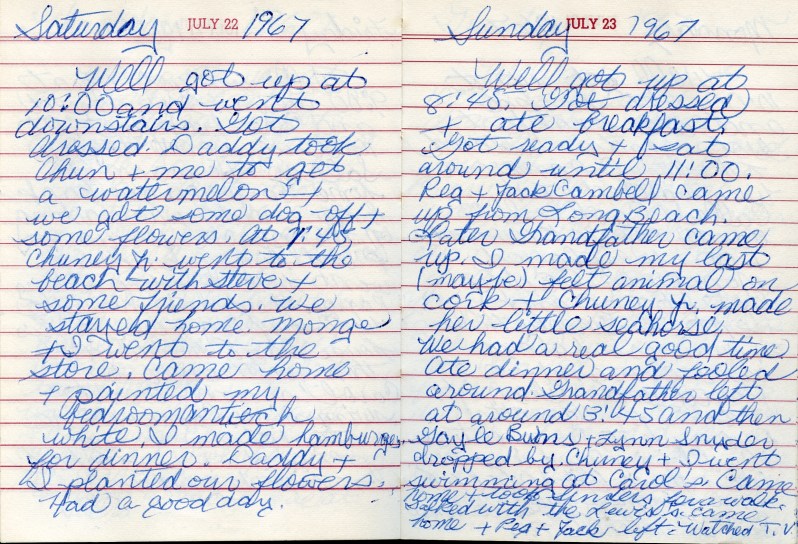 Saturday JULY 22 1967
Well got up at
10:00 and went
downstairs. Got
dressed. Daddy took
Chun + me to get
a watermelon +
we got some dog off +
some flowers. At 1:45
Chuney Jr. went to the
beach with Steve +
some friends. We
stayed home Monge
+ I went to the
store. Came home
+ painted my
bedroom
white. I made hamburges
for dinner. Daddy +
I planted our flowers.
Had a good day.
Sunday JULY 23 1967
Well got up at
8:45. Got dressed
+ ate breakfast.
Got ready + sat
around until 11:00.
Peg + Jack Cambell came
up from Long Beach.
Later Grandfather came
up. I made my last
(maybe) felt animal on
cork + Chuney Jr. made
her little seahorse
We had a real good time.
Ate dinner and fooled
around Grandfather left
at around 3:45 and then
Gayle Burns + Lynn Snyder
dropped by Chuney + I went
swimming at Carol's. Came
home + took for a walk.
Talked with the Lewis's. Came
home + Peg + Jack left. Watched T.V